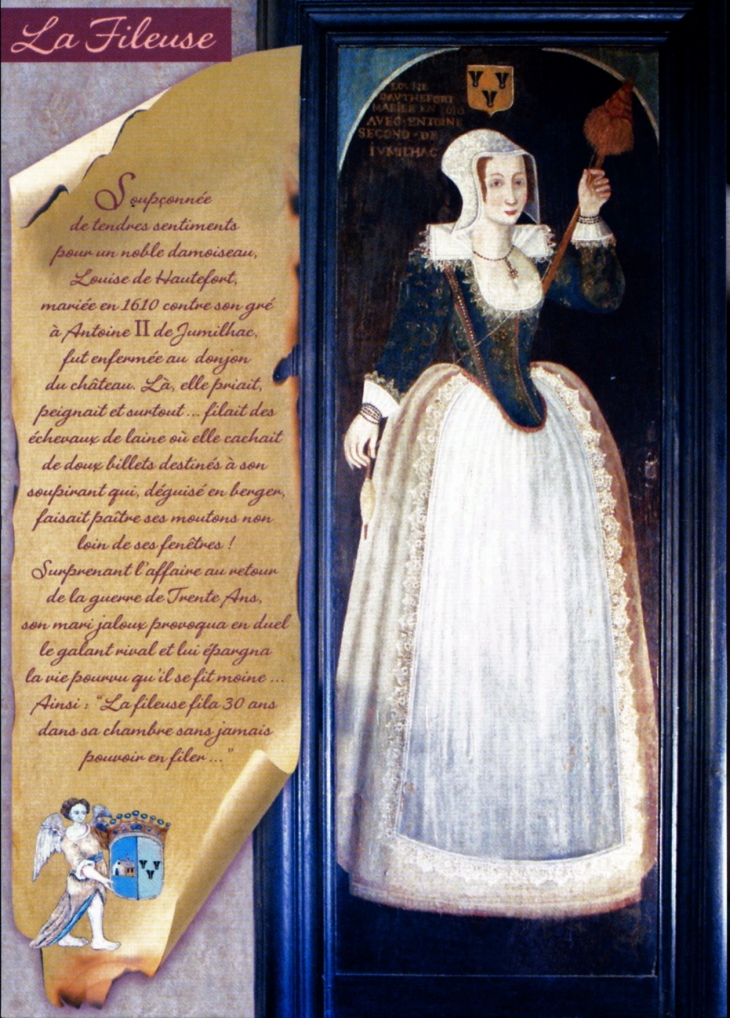 La Fileuse
Soupçonnée
de tendres sentiments
pour un noble damoiseau,
Louise de Hautefort,
mariée en 1610 contre son gré
à Antoine II de Jumilhac,
fut enfermée au donjon
du château. Là, elle priait,
peignait et surtout ... filait des
écheveaux de laine où elle cachait
de doux billets destinés à son
soupirant qui, déguisé en berger,
faisait paître ses moutons non
loin de ses fenêtres !
Surprenant l'affaire au retour
de la guerre de Trente Ans,
son mari jaloux provoqua en duel
le galant rival et lui épargna
la vie pourvu qu'il se fit moine ...
Ainsi : "La fileuse fila 30 ans
dans sa chambre sans jamais
pouvoir en filer ..."
AVEC·ENTOINE
SECOND·DE
IVMILHAC